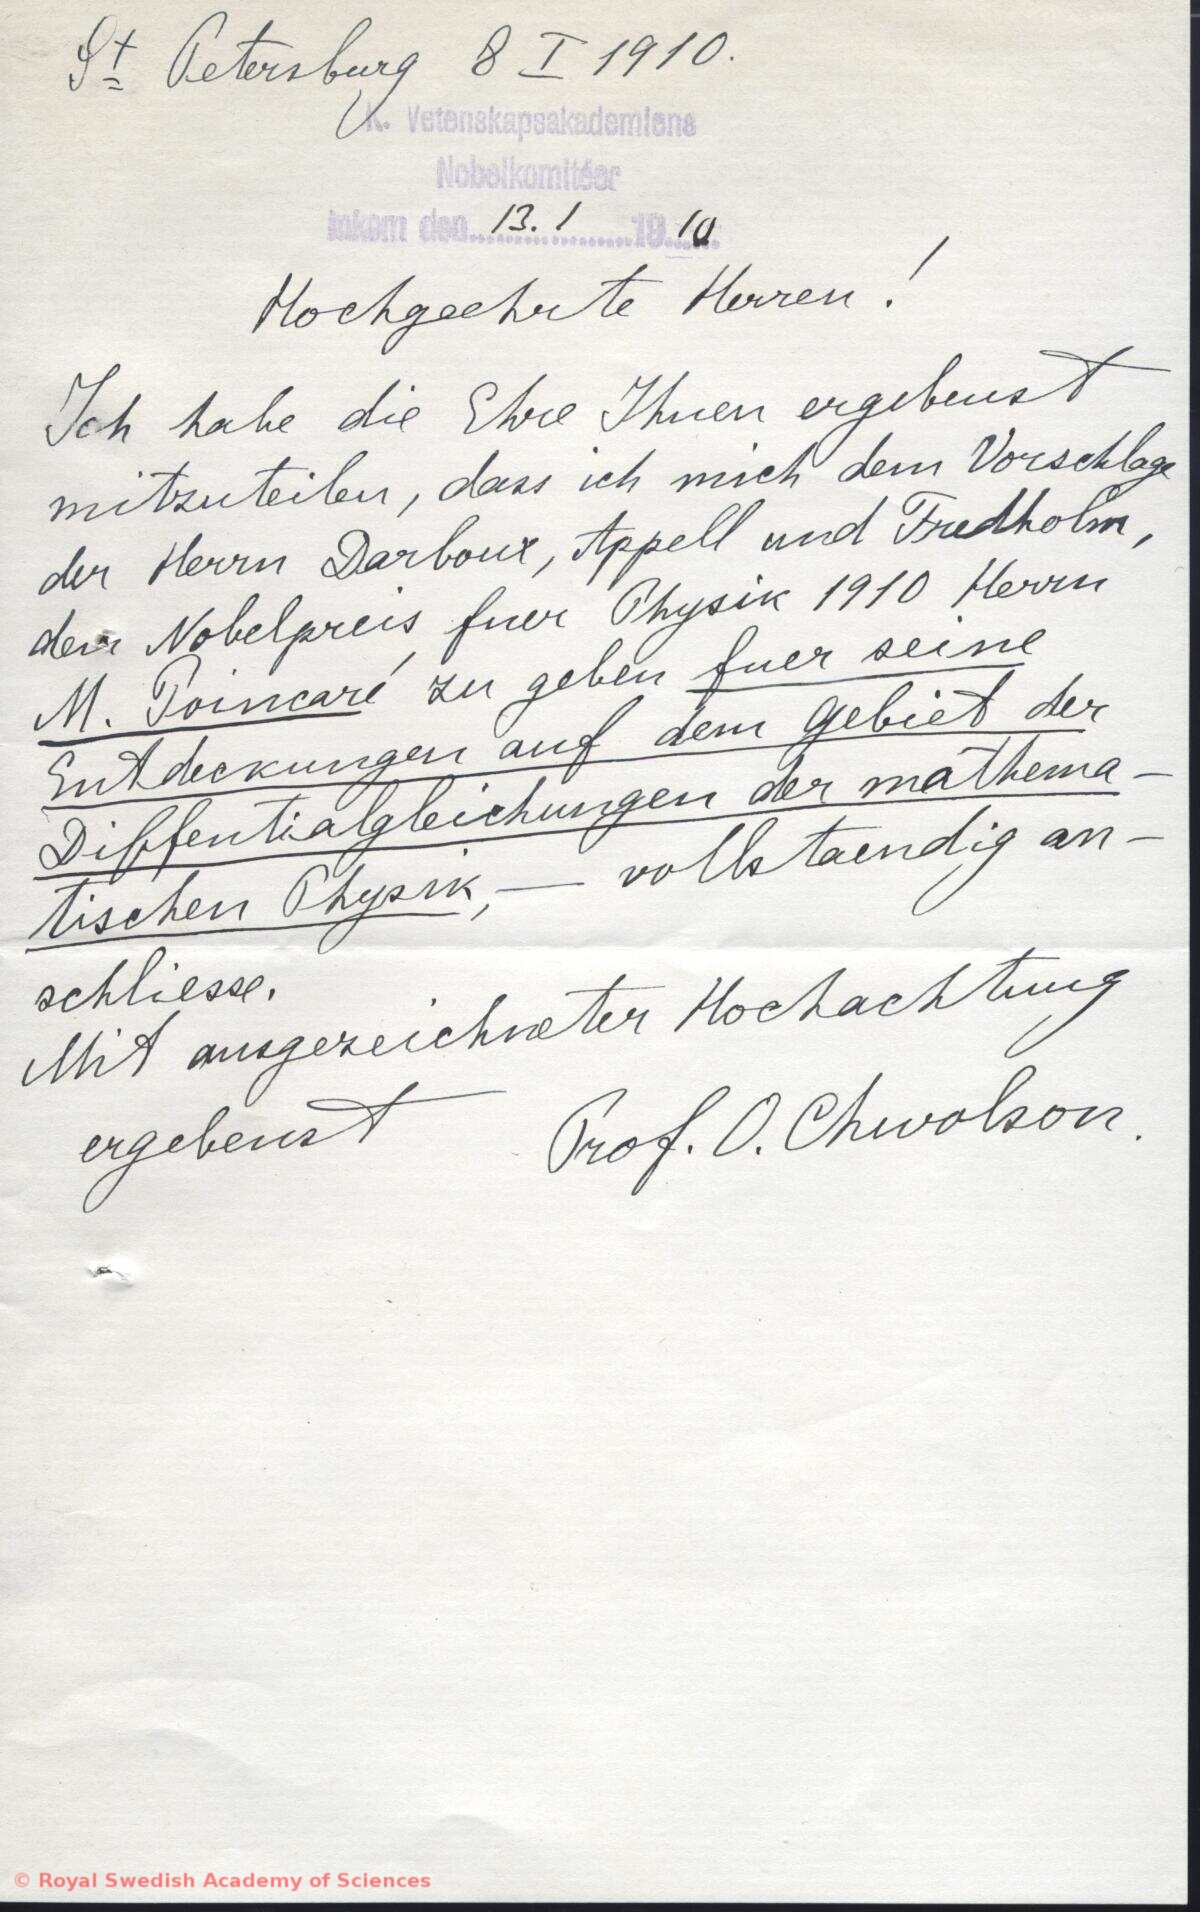 St Petersburg 8 I 1910.
K. Vetenskapsakademiens
Nobelkomitéer
Inkom den 13.1 1910
Hochgeehrte Herren!
Ich habe die Ehre Ihnen ergebenst
mitzuteilen, dass ich mich dem Vorschlage
der Herrn Darboux, Appell und Fredholm,
den Nobelpreis fuer Physik 1910 Herrn
M. Poincaré zu geben fuer seine
Entdeckungen auf dem Gebiet der
Diffentialgleichungen der mathema-
tischen Physik, — vollstaendig an-
schliesse.
Mit ausgezeichneter Hochachtung
ergebenst Prof. O. Chwolson.
© Royal Swedish Academy of Sciences